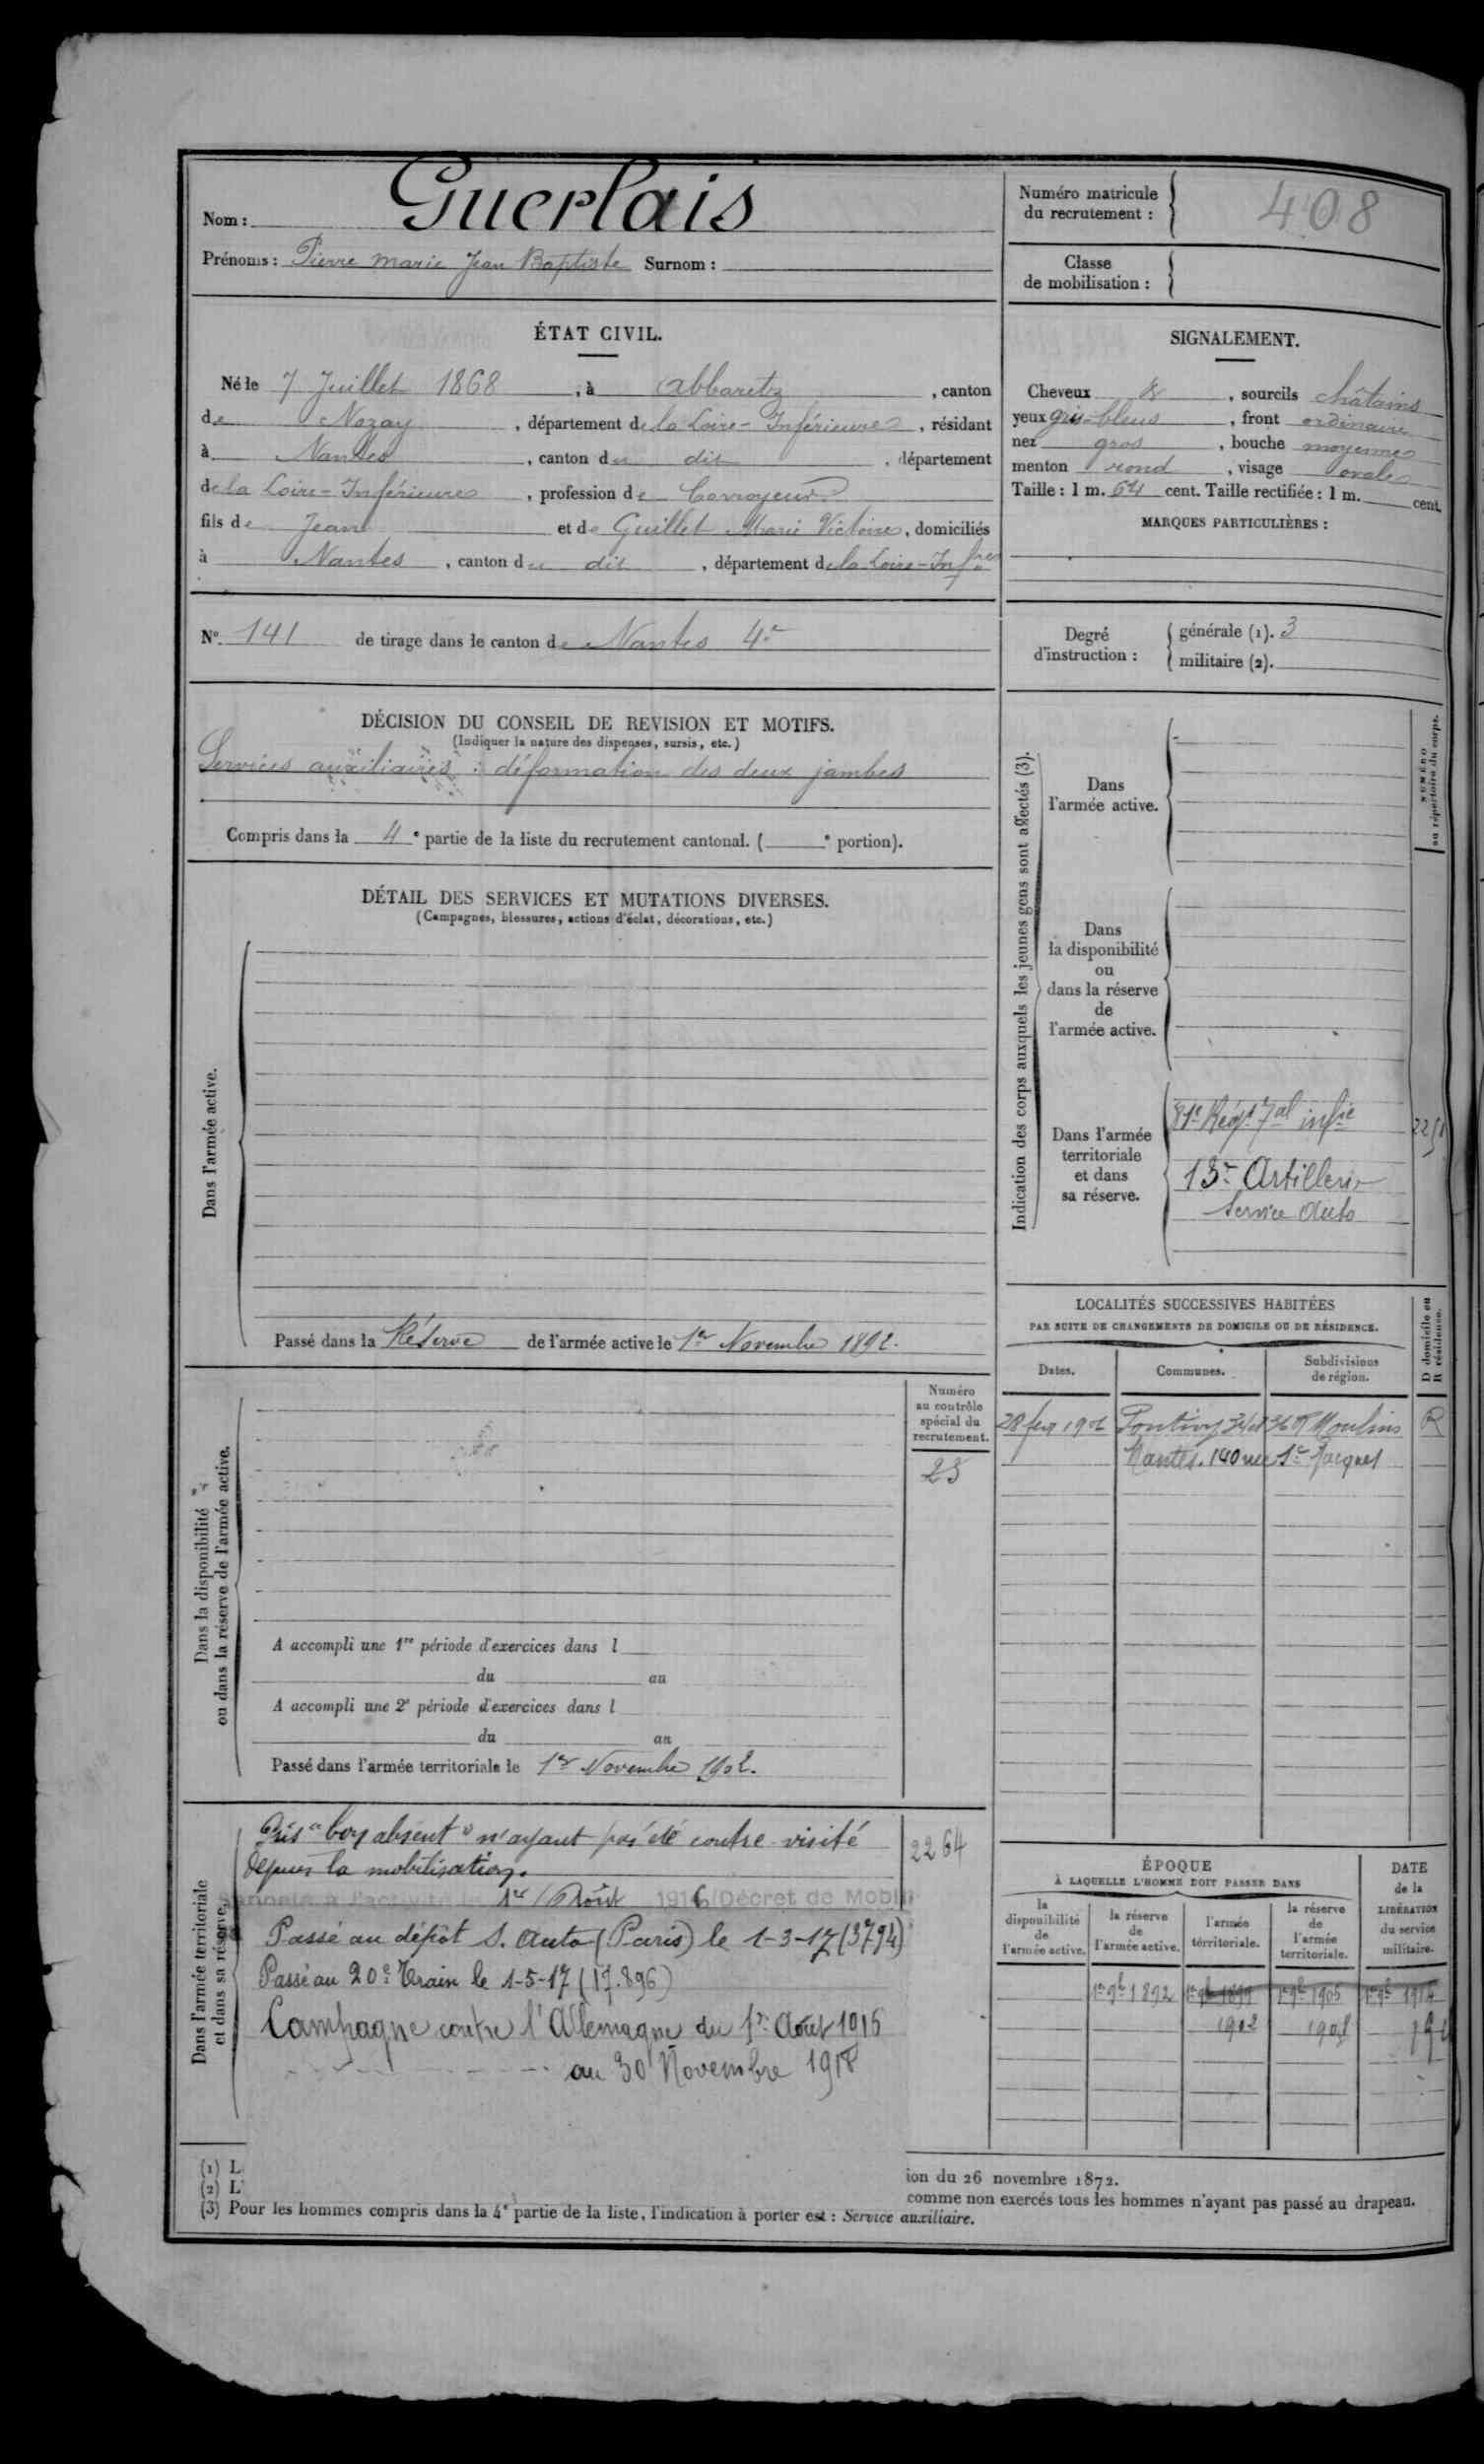 Nom : Guerlais
Prénoms : Pierre Marie Jean Baptiste Surnom :
Numéro matricule
du recrutement : 408
Classe
de mobilisation :
ÉTAT CIVIL.
Né le 7 Juillet 1868, à Abbaretz, canton
de Nozay, département de la Loire-Inférieure, résidant
à Nantes, canton du dit, département
de la Loire-Inférieure, profession de Corroyeur
fils de Jean et de Guillet Marie Victoire, domiciliés
à Nantes, canton du dit, département de la Loire-Infre
SIGNALEMENT.
Cheveux &, sourcils châtains
yeux gris-bleus, front ordinaire
nez gros, bouche moyenne
menton rond, visage ovale
Taille : 1 m. 64 cent. Taille rectifiée : 1 m. cent.
MARQUES PARTICULIÈRES :
No 141 de tirage dans le canton de Nantes 4e
Degré
d'instruction :
générale (1). 3
militaire (2).
DÉCISION DU CONSEIL DE REVISION ET MOTIFS.
(Indiquer la nature des dispenses, sursis, etc.)
Services auxiliaires : déformation des deux jambes
Compris dans la 4e partie de la liste du recrutement cantonal. ( e portion).
DÉTAIL DES SERVICES ET MUTATIONS DIVERSES.
(Campagnes, blessures, actions d'éclat, décorations, etc.)
Dans l'armée active.
Passé dans la Réserve de l'armée active le 1er Novembre 1892.
Indication des corps auxquels les jeunes gens sont affectés (3).
NUMÉRO
au répertoire du corps.
Dans
l'armée active.
Dans
la disponibilité
ou
dans la réserve
de
l'armée active.
Dans l'armée
territoriale
et dans
sa réserve.
81e Régt Tal infie
2251
13e Artillerie
Service Auto
LOCALITÉS SUCCESSIVES HABITÉES
PAR SUITE DE CHANGEMENTS DE DOMICILE OU DE RÉSIDENCE.
D domicile ou
R résidence.
Dates. Communes. Subdivisions
de région.
Pontivy Moulins R
Nantes. 140 rue St Jacques
Dans la disponibilité
ou dans la réserve de l'armée active.
Numéro
au contrôle
spécial du
recrutement.
23
A accompli une 1re période d'exercices dans l
du au
A accompli une 2e période d'exercices dans l
du au
Passé dans l'armée territoriale le 1er Novembre 1902.
Dans l'armée territoriale
et dans sa réserve.
Pris "bon absent" n'ayant pas été contre-visité
depuis la mobilisation.
2264
Rappelé à l'activité le 1er Août 1916 (Décret de Mobi
Passé au dépôt S. Auto (Paris) le 1-3-17 (3794)
Passé au 20e Train le 1-5-17 (17.896)
Campagne contre l'Allemagne du 1er Aout 1916
au 30 Novembre 1918
ÉPOQUE
À LAQUELLE L'HOMME DOIT PASSER DANS
DATE
de la
LIBÉRATION
du service
militaire.
la
disponibilité
de
l'armée active.
la réserve
de
l'armée active.
l'armée
territoriale.
la réserve
de
l'armée
territoriale.
1er 9b 1892 1er 9b 1899 1er 9b 1905 1er 9b 1914
1902 1908
(1) L
(2) L'
ion du 26 novembre 1872.
comme non exercés tous les hommes n'ayant pas passé au drapeau.
(3) Pour les hommes compris dans la 4e partie de la liste, l'indication à porter est : Service auxiliaire.